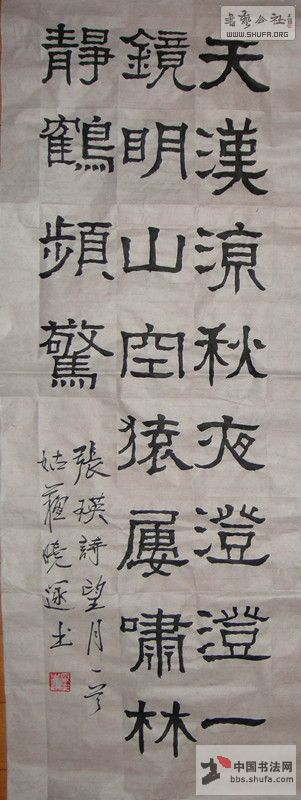 天漢涼秋夜澄澄一
鏡明山空猿屢嘯林
靜鶴頻驚
張瑛詩望月一首
姑蘇曉逐書
書藝公社
WWW.SHUFA.ORG
中国书法网
bbs.shufa.com